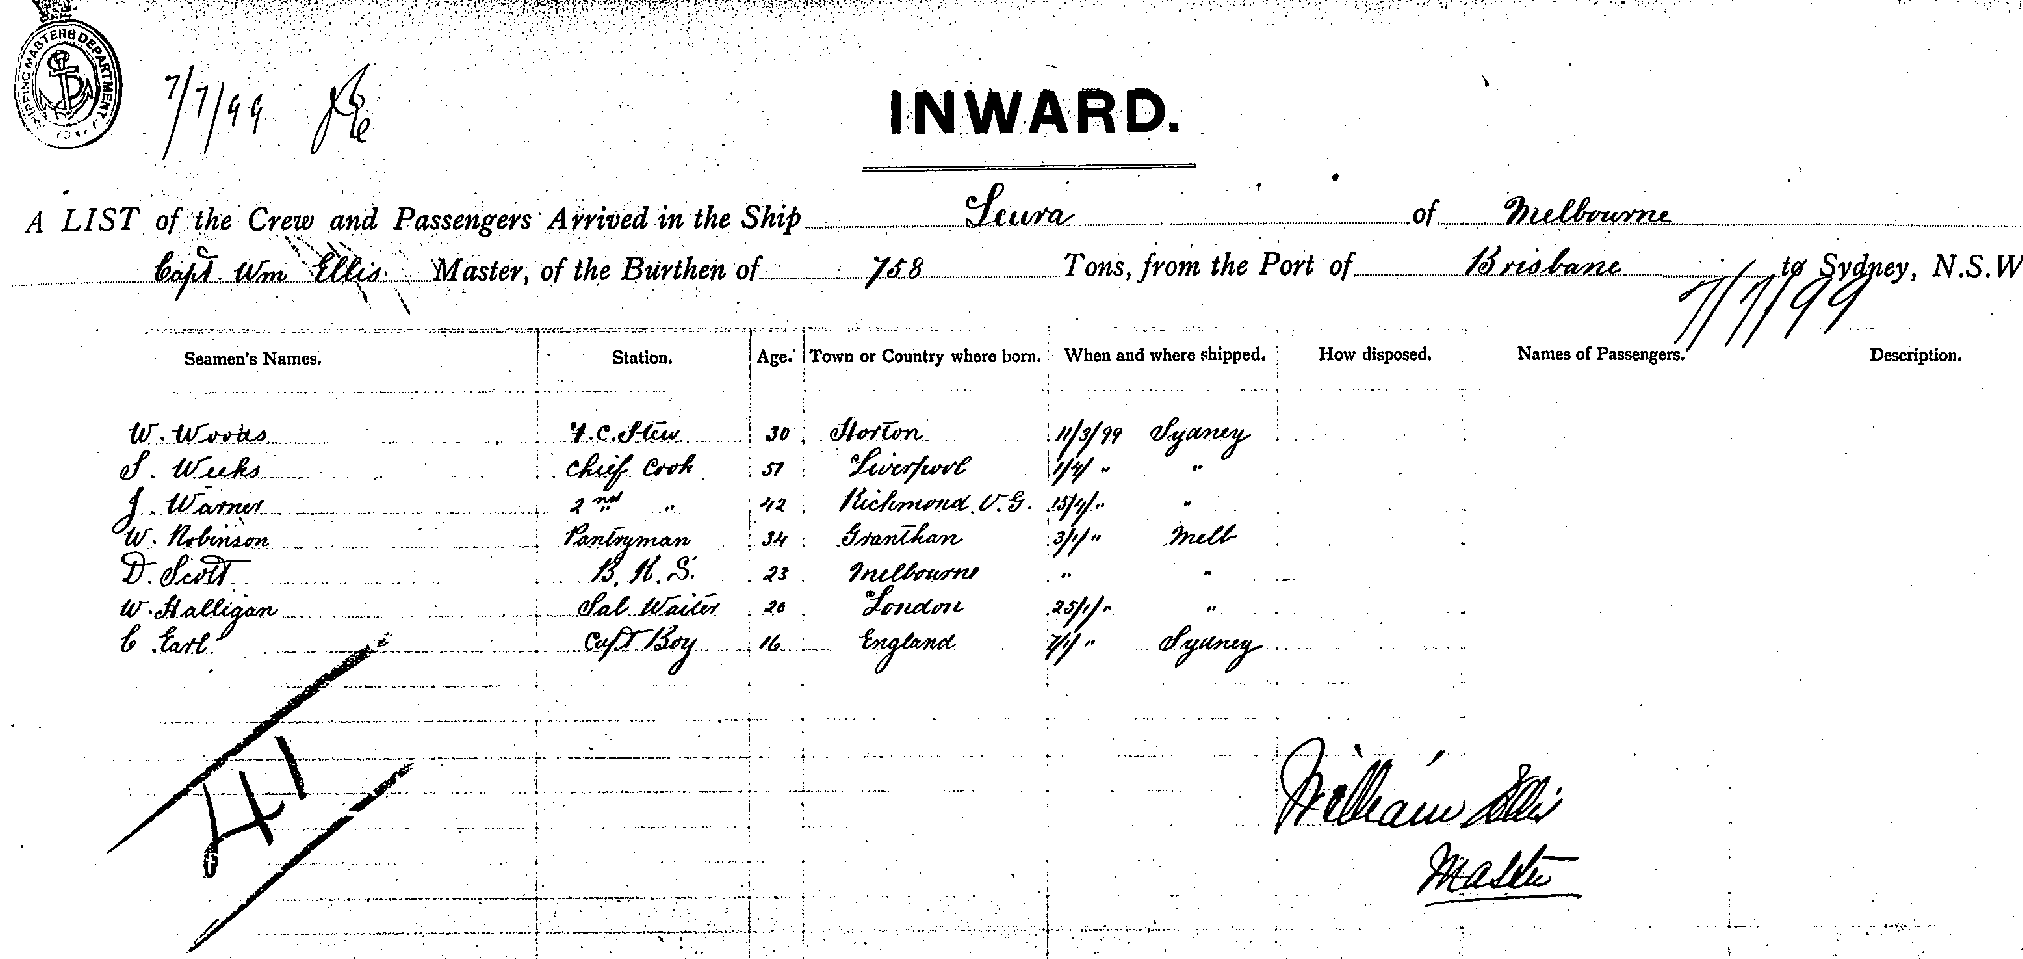 SHIPPING MASTERS DEPARTMENT
7/7/99
INWARD.
A LIST of the Crew and Passengers Arrived in the Ship Leura of Melbourne
Capt Wm Ellis Master, of the Burthen of 758 Tons, from the Port of Brisbane to Sydney, N.S.W
7/7/99
Seamen's Names. Station. Age. Town or Country where born. When and where shipped. How disposed. Names of Passengers. Description.
W. Woods F.C. Stew 30 Horton 11/3/99 Sydney
S. Weeks Chief Cook 57 Liverpool 1/4/ " "
J. Warner 2nd " 42 Richmond V.G. 15/4/ " "
W. Robinson Pantryman 34 Granthan 3/1/ " Melb
D. Scott B. K. S. 23 Melbourne " "
W. Halligan Sal Waiter 20 London 25/1/ " "
C Earl Capt Boy 16 England 7/1/ " Sydney
41
William Ellis
Master